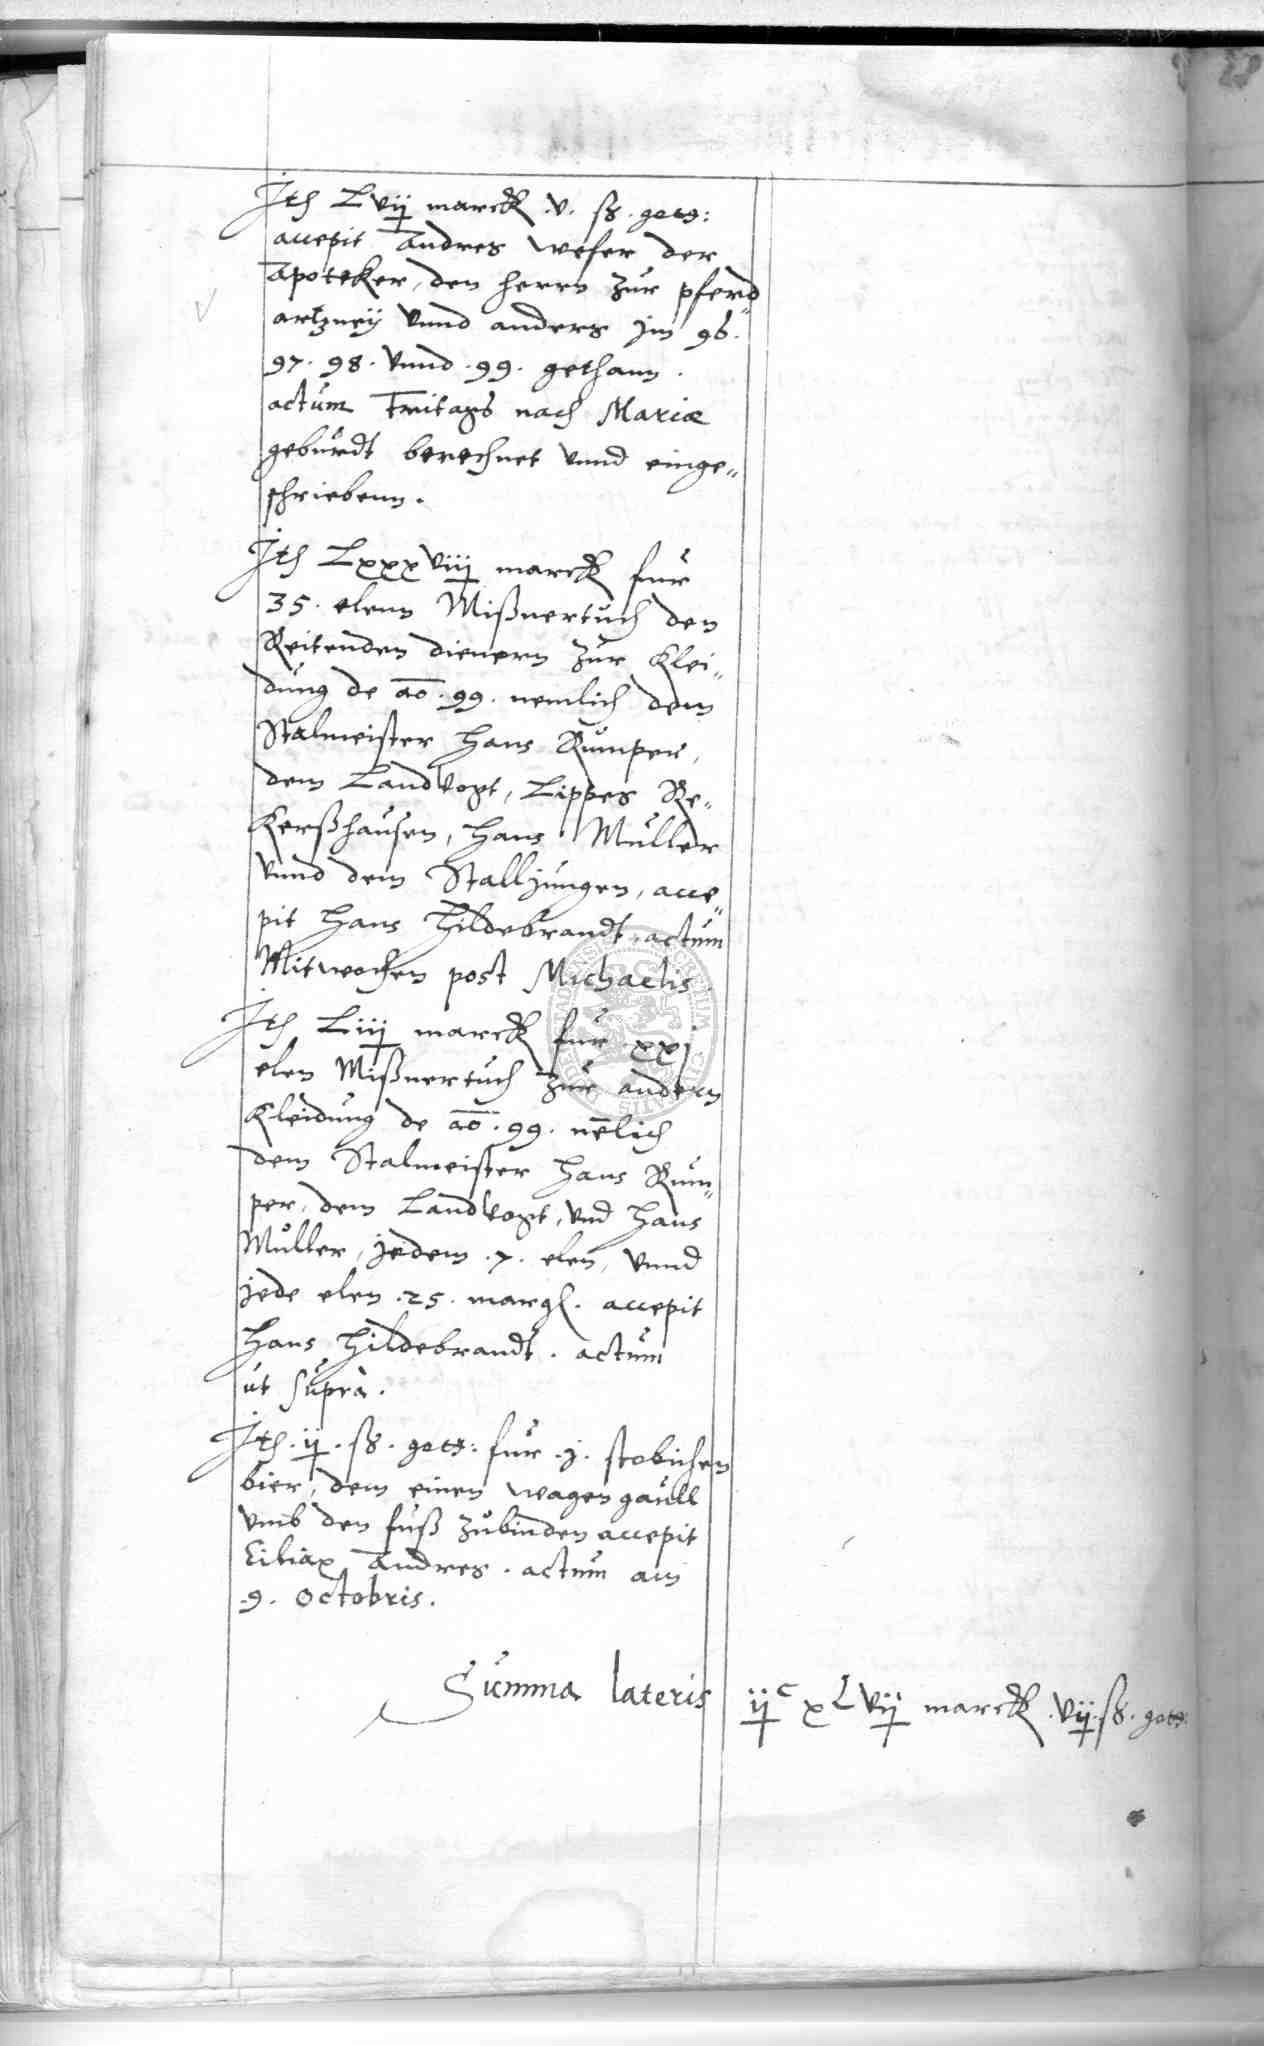 Jtē Lvij marck .v. ß. gott:
accepit Andres weser der
Apoteker, den herrn zur pferd„
artzneÿ vnnd anders jm 96.
97. 98. vnnd .99. gethann.
actum Freitags nach Mariæ
geburdt berechnet vnnd einge„
schriebenn.
Jtē Lxxxviij marck fur
35. elenn Mißnertuch den
Reitenden dienern zur Klei„
dung de ao .99. nemlich dem
Stalmeister Hans Rumper,
dem Landvogt, Lippes Re„
kerßhausen, Hans Muller
vnnd dem Stalljungen, acce„
pit Hans Hildebrandt, actum
Mitwochen post Michaelis.
Jtē Liij marck fur xxj
elen Mißnertuch zur andern
Kleidung de ao .99. nēlich
dem Stalmeister Hans Rum„
per, dem Landvogt, vnd Hans
Muller, jedem .7. elen, vnnd
jede elen .25. margl. accepit
Hans Hildebrandt. actum
ut supra.
Jtē .ij. ß. gott: fur .j. stobichen
bier, dem einen wagengaull
vmb den fuß zubinden accepit
Ciliax Andres. actum am
.9. Octobris.
Summa lateris ijc xLvij marck .vij. ß. gott: